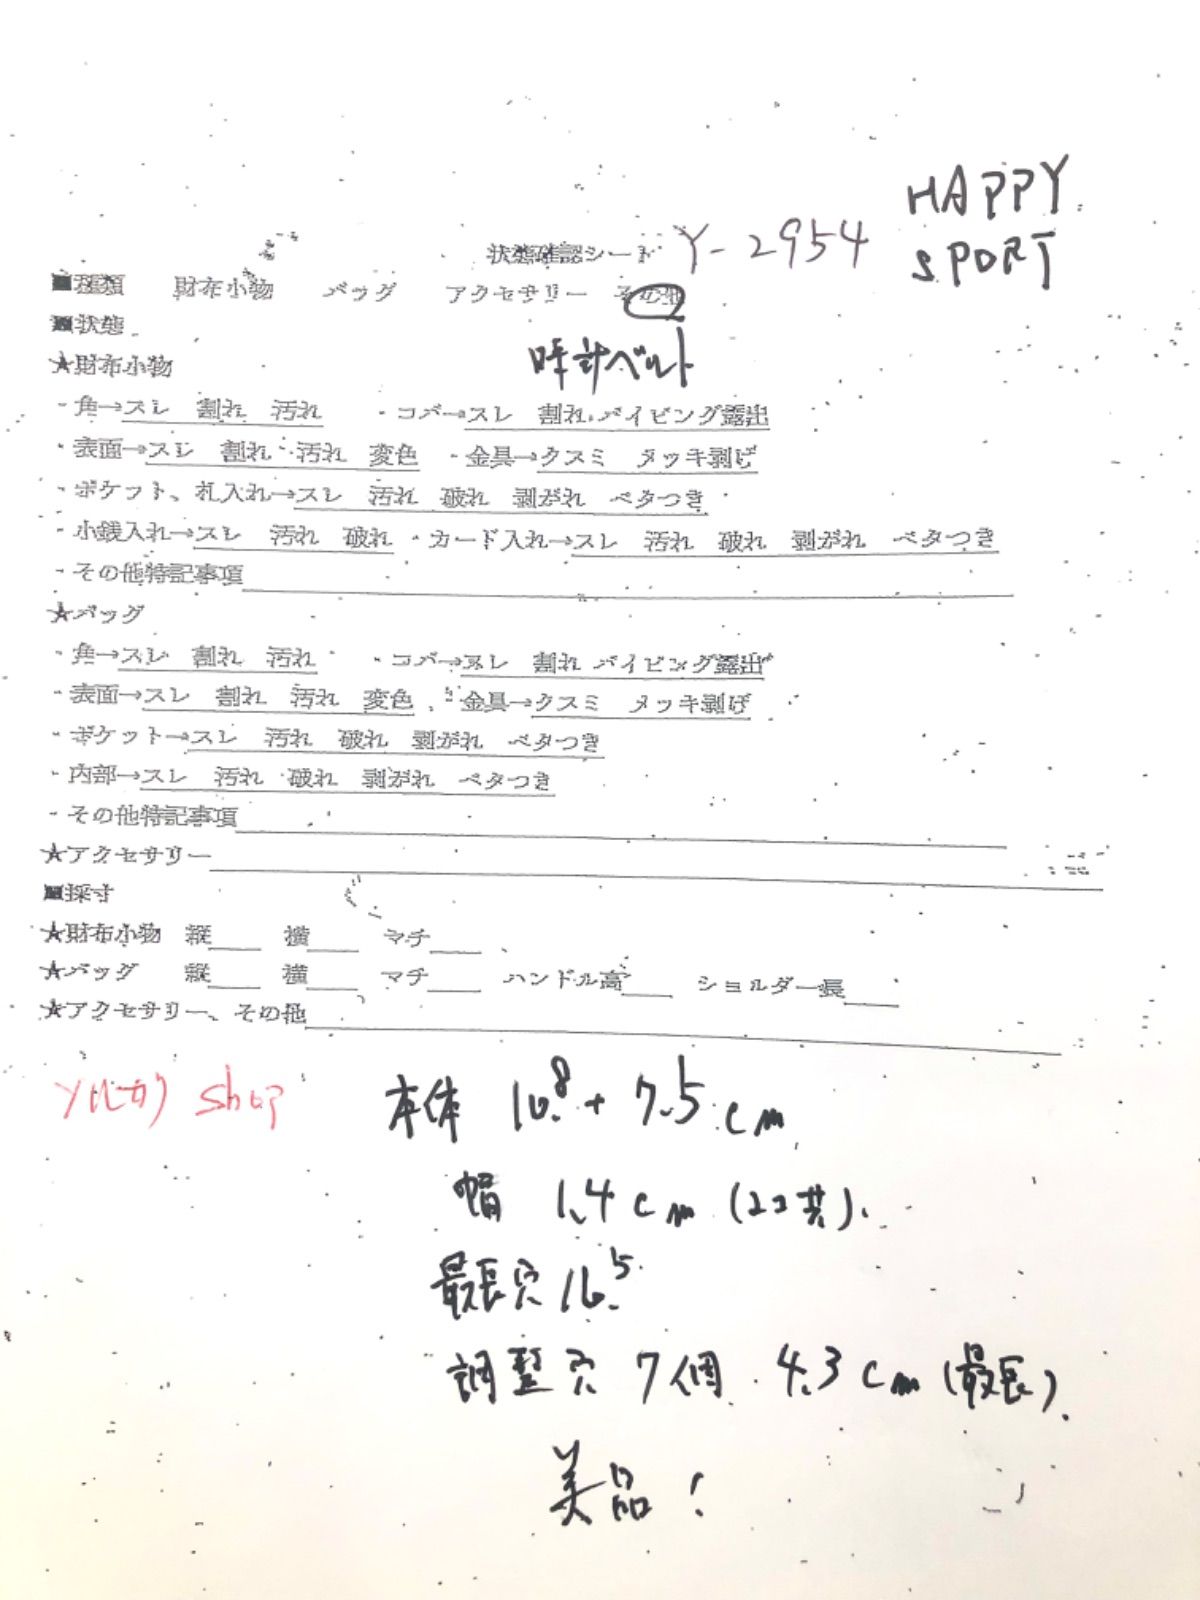 HAPPY
SPORT
状態確認シート Y-2954
■種類 財布小物 バッグ アクセサリー その他
■状態
時計ベルト
★財布小物
・角→スレ 割れ 汚れ ・コバ→スレ 割れ パイピング露出
・表面→スレ 割れ 汚れ 変色 ・金具→クスミ メッキ剥げ
・ポケット、札入れ→スレ 汚れ 破れ 剥がれ ベタつき
・小銭入れ→スレ 汚れ 破れ ・カード入れ→スレ 汚れ 破れ 剥がれ ベタつき
・その他特記事項
★バッグ
・角→スレ 割れ 汚れ ・コバ→スレ 割れ パイピング露出
・表面→スレ 割れ 汚れ 変色 ・金具→クスミ メッキ剥げ
・ポケット→スレ 汚れ 破れ 剥がれ ベタつき
・内部→スレ 汚れ 破れ 剥がれ ベタつき
・その他特記事項
★アクセサリー
■採寸
★財布小物 縦 横 マチ
★バッグ 縦 横 マチ ハンドル高 ショルダー長
★アクセサリー、その他
shop
本体 10.8 + 7.5 cm
幅 1.4 cm (2コ共).
最長穴 16.5
調整穴 7個 4.3 cm (最長).
美品!